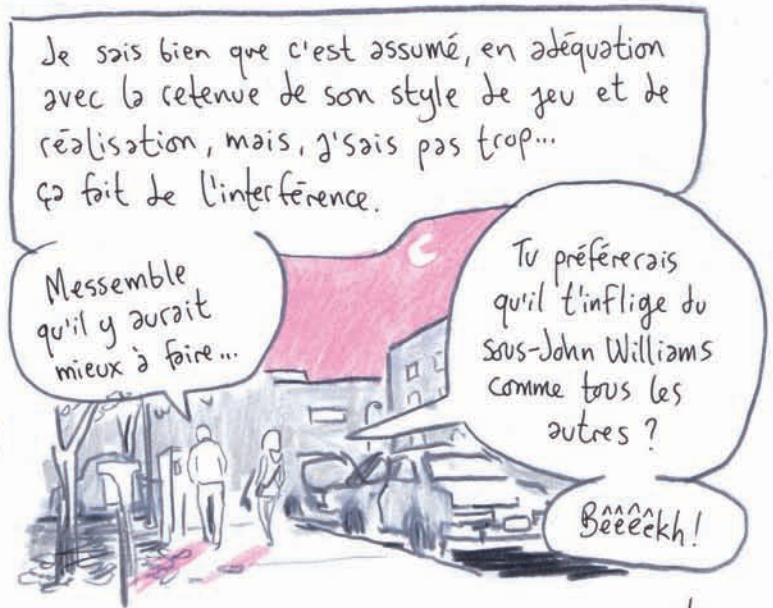 Je sais bien que c'est assumé, en adéquation
avec la retenue de son style de jeu et de
réalisation, mais, j'sais pas trop...
ça fait de l'interférence.
Messemble
qu'il y aurait
mieux à faire...
Tu préférerais
qu'il t'inflige du
sous-John Williams
comme tous les
autres ?
Bêêêêkh !